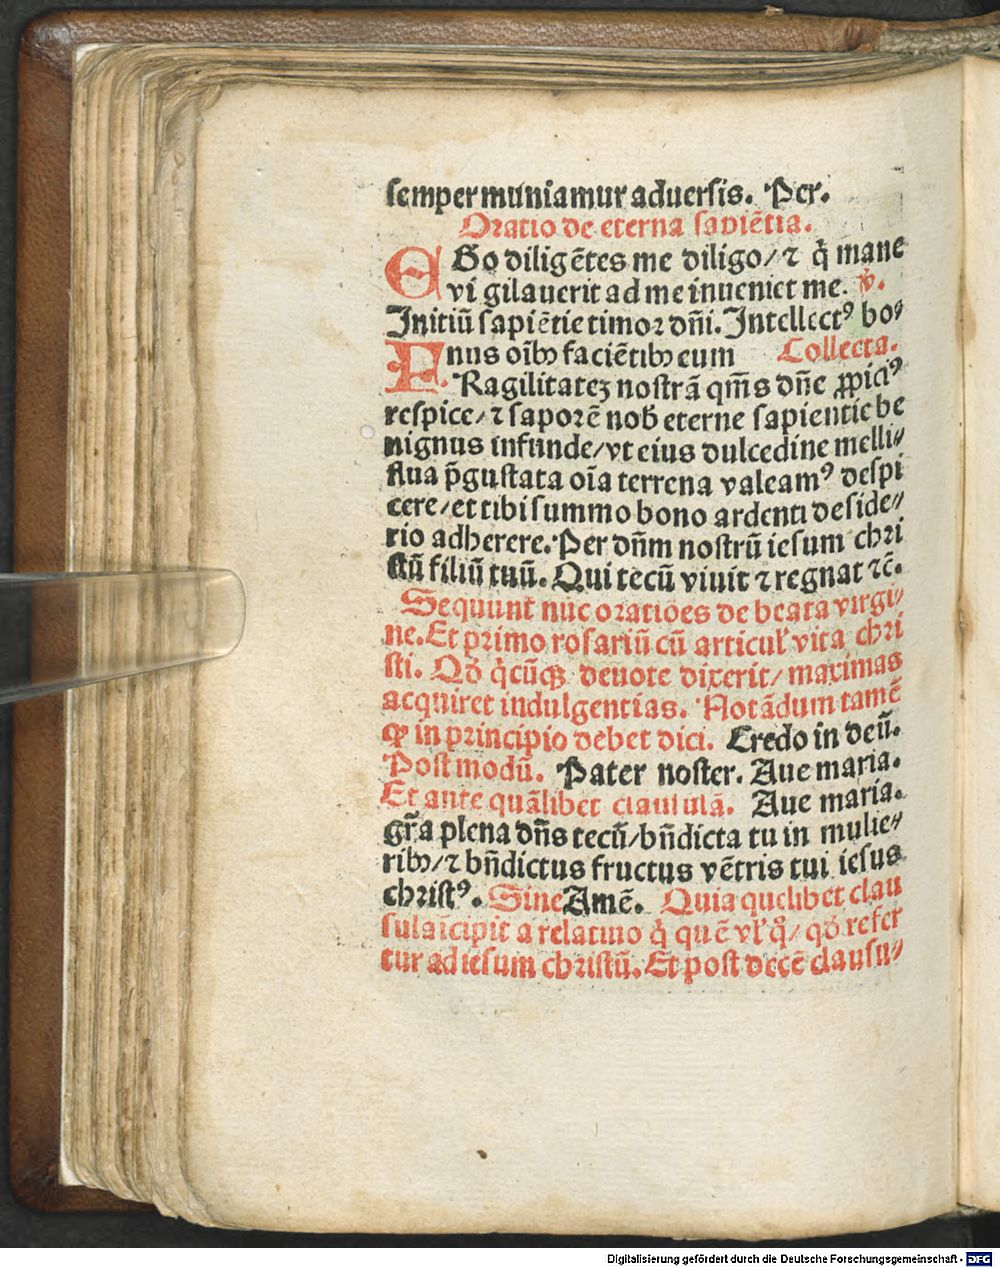 semper muniamur aduersis. Per.
Oratio de eterna sapiẽtia.
EGo diligẽtes me diligo/ ⁊ q̃ mane
vi gilauerit ad me inueniet me. ℣.
Initiũ sapiẽtie timoꝛ dñi. Intellectꝰ bo⸗
nus oĩbꝫ faciẽtibꝫ eum Collecta.
FRagilitateꝫ nostrã qm̃s dñe ꝓpiciꝰ
respice/ ⁊ saporẽ nob̃ eterne sapientie be
nignus infunde/ vt eius dulcedine melli⸗
flua p̃gustata oĩa terrena valeamꝰ despi
cere/ et tibi summo bono ardenti deside⸗
rio adherere. Per dñm nostrũ iesum chꝛi
stũ filiũ tuũ. Qui tecũ viuit ⁊ regnat ⁊c̃.
Sequunt̃ nũc oꝛatiões de beata virgi⸗
ne. Et primo rosariũ cũ articul' vita chꝛi
sti. Qđ q̃cũqꝫ deuote dixerit/ maximas
acquiret indulgentias. Notãdum tamẽ
ꝙ in pꝛincipio debet dici. Credo in deũ.
Postmodũ. Pater noster. Aue maria.
Et ante quãlibet clausulã. Aue maria.
gr̃a plena dñs tecũ/ bñdicta tu in mulie⸗
ribꝫ/ ⁊ bñdictus fructus vẽtris tui iesus
chꝛistꝰ. Sine Amẽ. Quia quelibet clau
sula ĩcipit a relatiuo q̃ quẽ vl' q̃/ qđ refer
tur ad iesum chꝛistũ. Et post decẽ clausu⸗
Digitalisierung gefördert durch die Deutsche Forschungsgemeinschaft - DFG